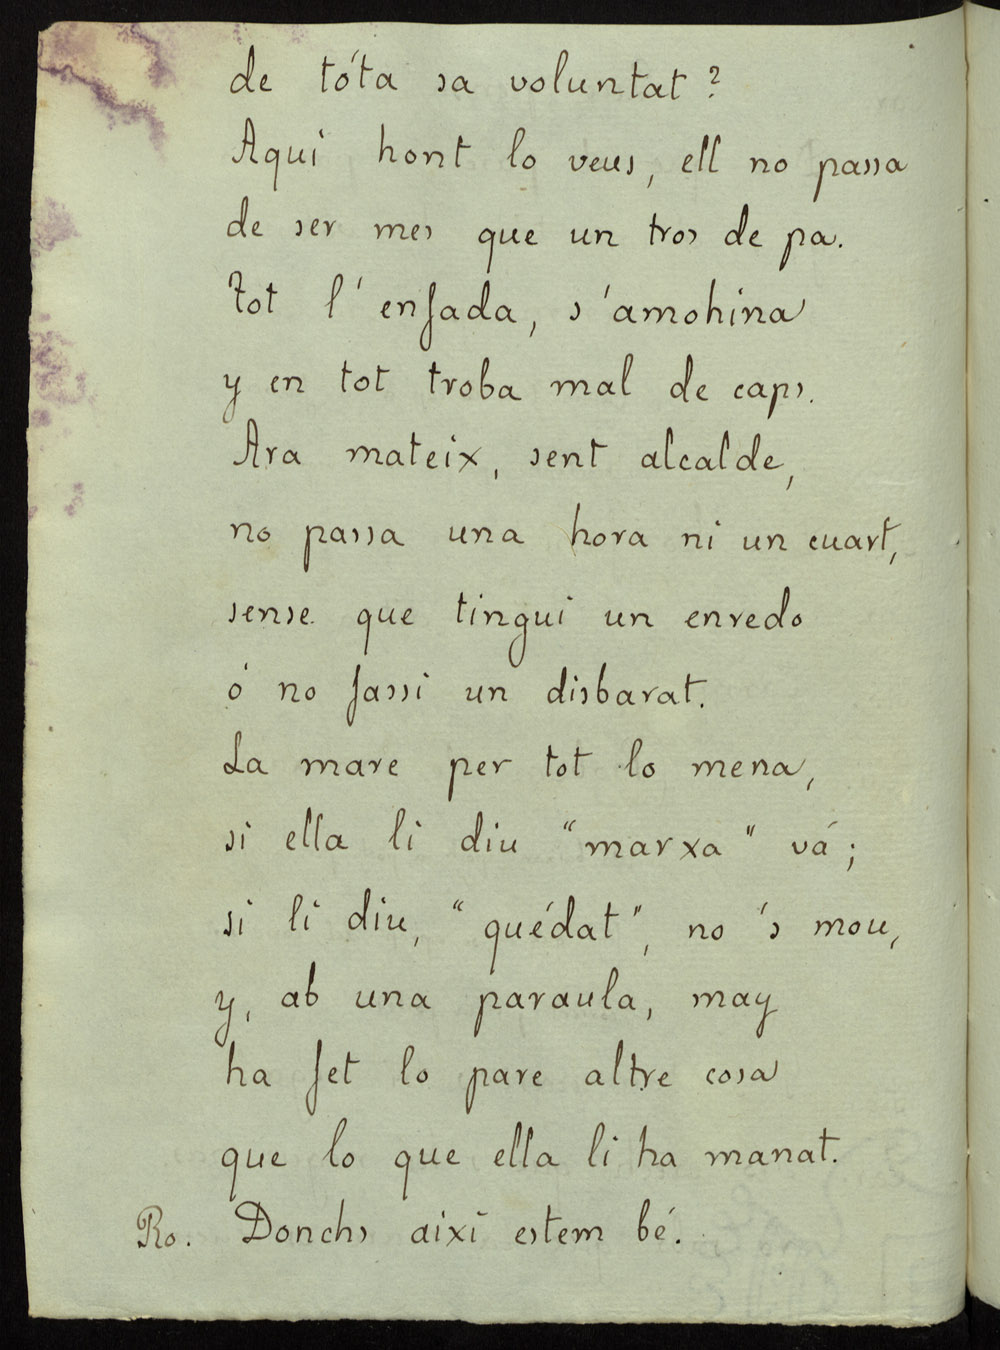 de tóta sa voluntat?
Aqui hont lo veus, ell no passa
de ser mes que un tros de pa.
Tot l'enfada, s'amohina
y en tot troba mal de caps.
Ara mateix, sent alcalde,
no passa una hora ni un cuart,
sense que tingui un enredo
ó no fassi un disbarat.
La mare per tot lo mena,
si ella li diu "marxa" vá;
si li diu, "quédat", no 's mou,
y, ab una paraula, may
ha fet lo pare altre cosa
que lo que ella li ha manat.
Ro. Donchs aixi estem bé.